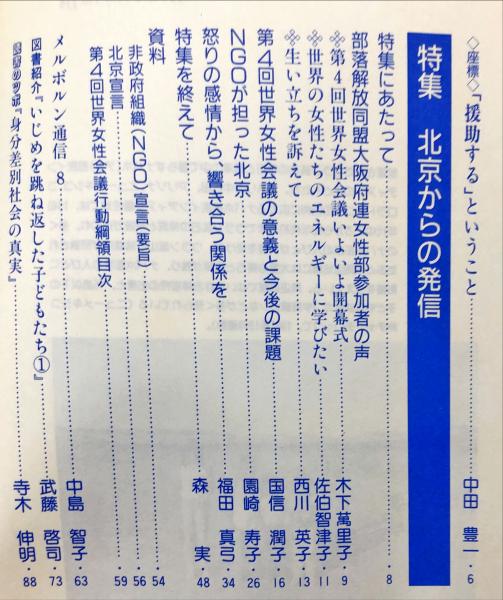 ◇座標◇「援助する」ということ 中田 豊一・6
特集 北京からの発信
特集にあたって 8
部落解放同盟大阪府連女性部参加者の声
❖第4回世界女性会議いよいよ開幕式 木下萬里子・9
❖世界の女性たちのエネルギーに学びたい 佐伯智津子・11
❖生い立ちを訴えて 西川 英子・13
第4回世界女性会議の意義と今後の課題 国信 潤子・16
NGOが担った北京 園崎 寿子・26
怒りの感情から、響き合う関係を 福田 真弓・34
特集を終えて 森 実・48
資料 54
非政府組織(NGO)宣言(要旨) 56
北京宣言 59
第4回世界女性会議行動綱領目次
メルボルン通信・8 中島 智子・63
図書紹介『いじめを跳ね返した子どもたち①』 武藤 啓司・73
『身分差別社会の真実』 寺木 伸明・88